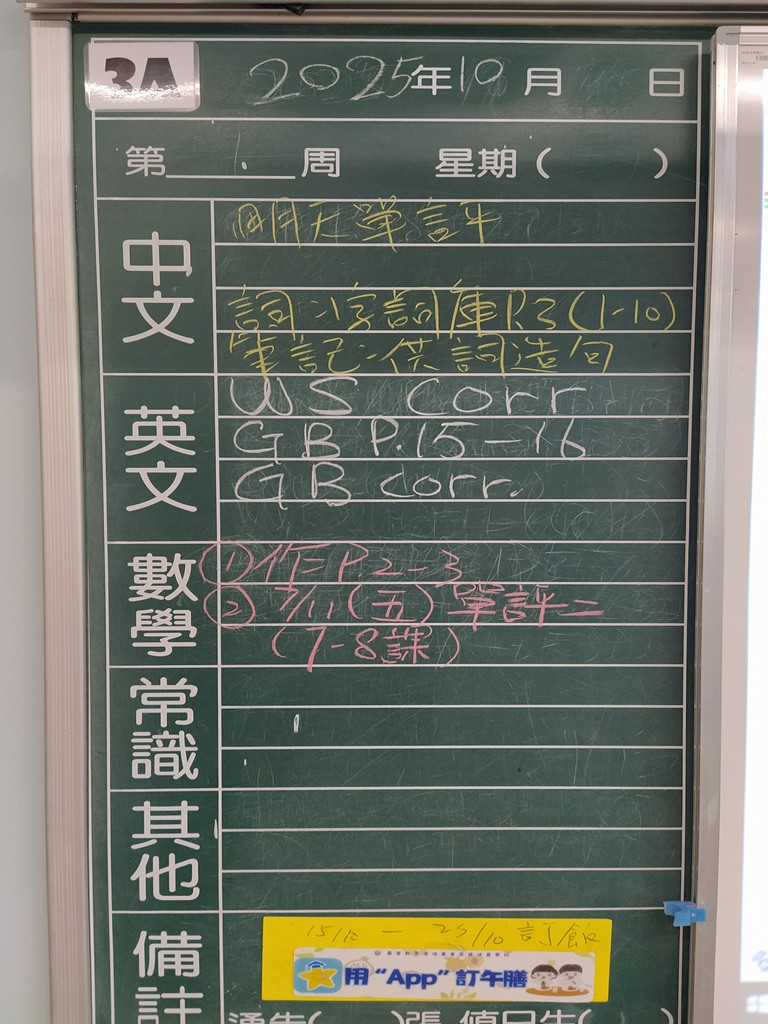 3A
2025年10月 日
第 周 星期( )
中文
明天單評
詞:字詞庫P.3(1-10)
筆記:供詞造句
英文
WS Corr
GB P.15-16
GB corr.
數學
①作P.2-3
② 7/11(五)單評二
(7-8課)
常識
其他
備註
15/10 - 25/10 訂飯
用“App”訂午膳